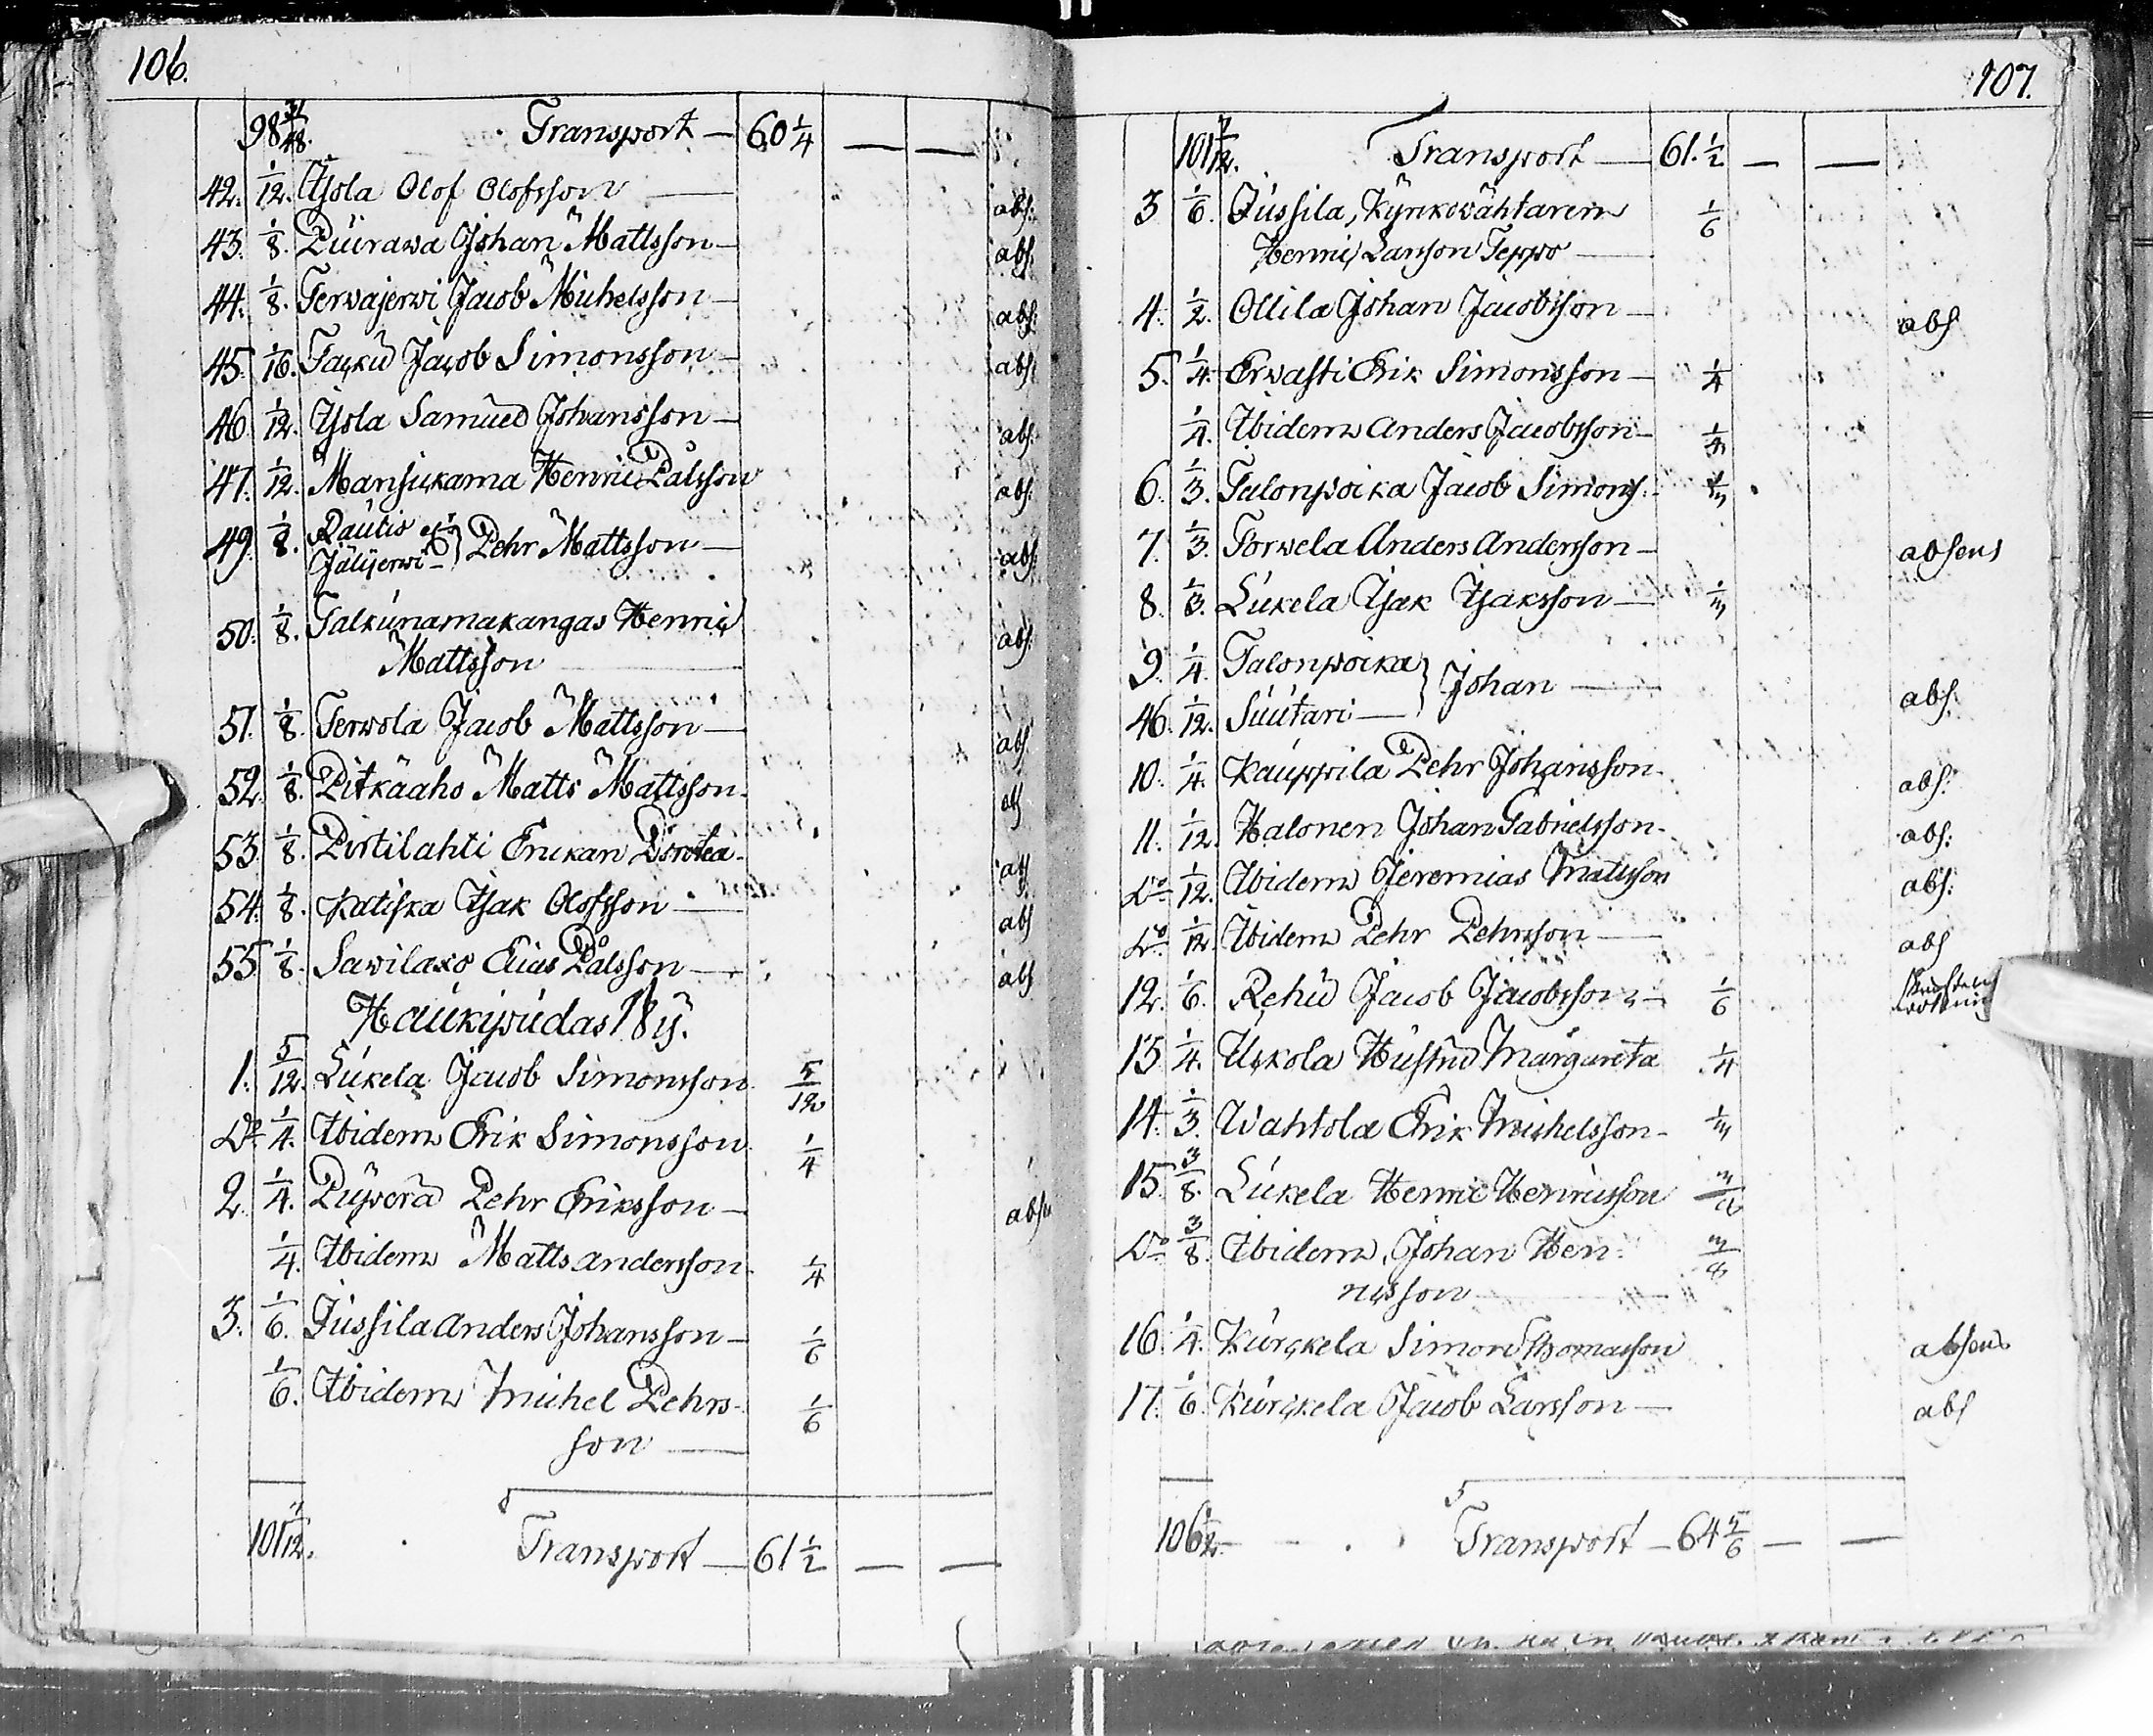 106.
98 31/48. Transport — 60 1/4 — —
42. 1/12. Ijsola Olof Olofsson — abs:
43. 1/8. Puirawa Johan Mattsson — abs:
44. 1/8. Terwajerwi Jacob Michelsson — abs:
45. 1/16. Tacku Jacob Simonsson — abs
46 1/12. Ijsola Samuel Johansson — abs:
47. 1/12. Mansickama Henric Pålsson abs:
49. 1/8. Rautio et
Jälijerwi — } Pehr Mattsson — abs:
50. 1/8. Talkunamakangas Henric
Mattsson — abs:
51. 1/8. Terwola Jacob Mattsson — abs
52. 1/8. Pitkäaho Matts Mattsson. abs
53. 1/8. Pirtilahti Erickan Dorotea. abs
54. 1/8. Katiska Isak Olofsson — abs
55 1/8. Sawilaxo Elias Pålsson — abs
Haukipudas By.
1. 5/12. Lukela Jacob Simonsson. 5/12
Do 1/4. Ibidem Erik Simonsson. 1/4
2. 1/4. Pehr Eriksson — abs
1/4. Ibidem Matts Andersson. 1/4
3. 1/6. Jussila Anders Johansson — 1/6
1/6. Ibidem Michel Pehrs-
son — 1/6
101 7/12. Transport — 61 1/2 — —
107.
101 7/12. Transport — 61. 1/2 — —
3 1/6. Jussila, Kynkowähtaren 1/6
Henric Larsson Teppo —
4. 1/2. Ollila Johan Jacobsson — abs
5. 1/4. Erwasti Erik Simonsson — 1/4
1/4. Ibidem Anders Jacobsson — 1/4
6. 1/3. Talonpoika Jacob Simons: 1/3
7. 1/3. Torwela Anders Andersson — absens
8. 1/3. Lukela Isak Isaksson — 1/3
9. 1/4. Talonpoika
46. 1/12. Suutari — } Johan — abs:
10. 1/4. Kauppila Pehr Johansson. abs:
11. 1/12. Halonen Johan Gabrielsson. abs:
Do 1/12. Ibidem Jeremias Mattsson abs:
Do 1/12. Ibidem Pehr Pehrsson — abs
12. 1/6. Rehu Jacob Jacobsson — 1/6
13 1/4. Uckola Hustru Margareta 1/4
14. 1/3. Wahtola Erik Michelsson — 1/3
15. 3/8. Lukela Henric Henricsson 3/8
Do 3/8. Ibidem, Johan Hen- 3/8
ricsson —
16. 1/4. Kurckela Simon Thomasson absens
17. 1/6. Kurckela Jacob Larsson — abs
106 1/2. Transport — 64 5/6 — —